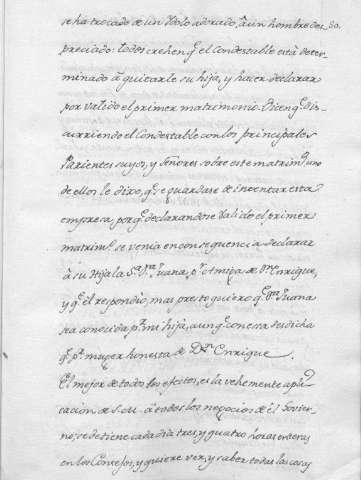 se ha trocado de un Idolo adorado, à un hombre des-
preciado: todos crehen qe. el Condestable está deter-
minado à quitarle su hija, y hacer declarar
por valido el primer matrimonio. Dicen qe. dis-
curriendo el Condestable con los principales
Parientes suyos, y Señores sobre este matrimo. uno
de ellos le dixo, qe. se guardase de intentar esta
empresa, porqe. declarandose valido el primer
matrimo. se venia en consequencia à declarar
à su Hija la Sa. Da. Juana, pr. Amiga de Dn. Enrique,
y qe. él respondió, mas presto quiero qe. Da. Juana
sea conocida pr. mi hija, aunqe. con esta desdicha
qe. pr. muger honesta de Dn. Enrique.
El mejor de todos los efectos, es la vehemente apli-
cacion de S.M. à todos los negocios de el Govier-
no; se detiene cada dia tres, y quatro horas enteras
en los Consejos, y quiere ver, y saber todas las cosas